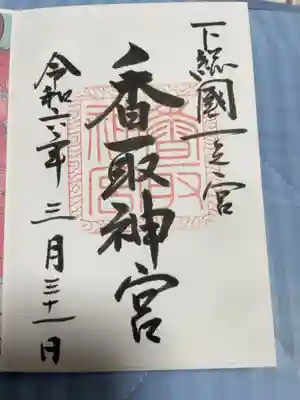 下総國一之宮
香取神宮
令和六年三月三十一日